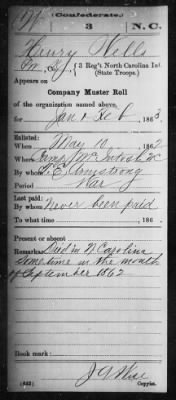 (Confederate.)
3 N.C.
Henry Wells
Pvt, Co. , 3 Reg't North Carolina Inf.
(State Troops.)
Appears on
Company Muster Roll
of the organization named above,
for Jan & Feb, 1863.
Enlisted:
When May 10, 1862
Where Camp McIntosh NC
By whom T. E. Armstrong
Period War
Last paid:
By whom Never been paid
To what time , 186 .
Present or absent
Remarks: Died in N Carolina
sometime in the month
of September 1862
Book mark:
J G Wise
(642) Copyist.